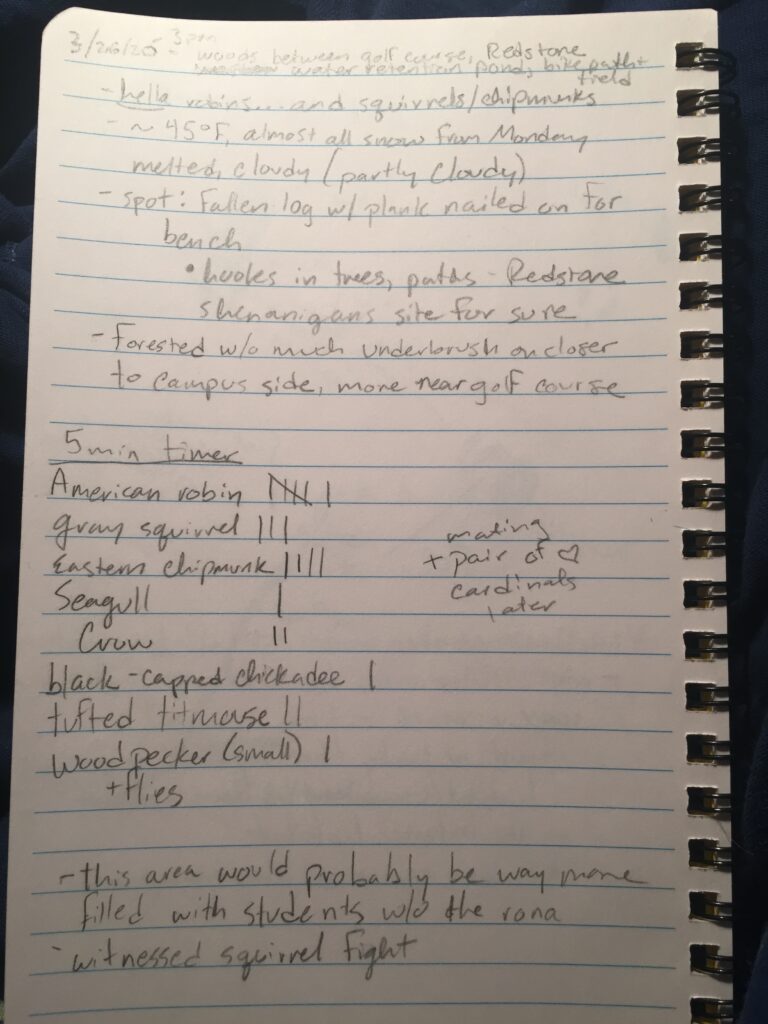 3/26/20 - 3pm woods between golf course, Redstone
water retention pond, bike path +
field
- hella robins... and squirrels/chipmunks
- ~ 45°F, almost all snow from Monday
melted, cloudy (partly cloudy)
- spot: Fallen log w/ plank nailed on for
bench
• hooks in trees, paths - Redstone
shenanigans site for sure
- Forested w/o much underbrush on closer
to campus side, more near golf course
5 min timer
American robin |||| |
gray squirrel |||
Eastern chipmunk ||||
Seagull |
Crow ||
black-capped chickadee |
tufted titmouse ||
Woodpecker (small) |
+ flies
mating
+ pair of ♡
cardinals
later
- this area would probably be way more
filled with students w/o the rona
- witnessed squirrel fight